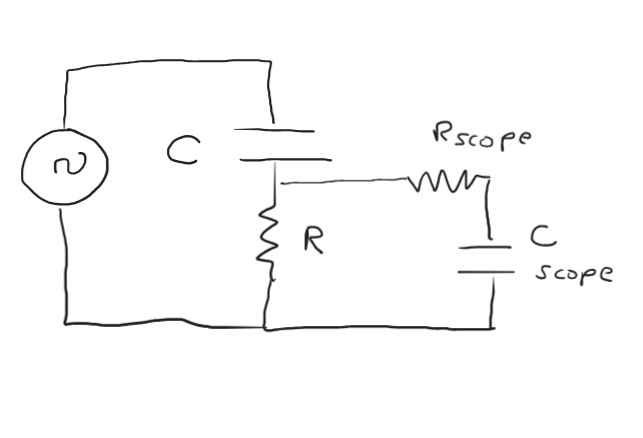 Rscope
C
R
C
scope